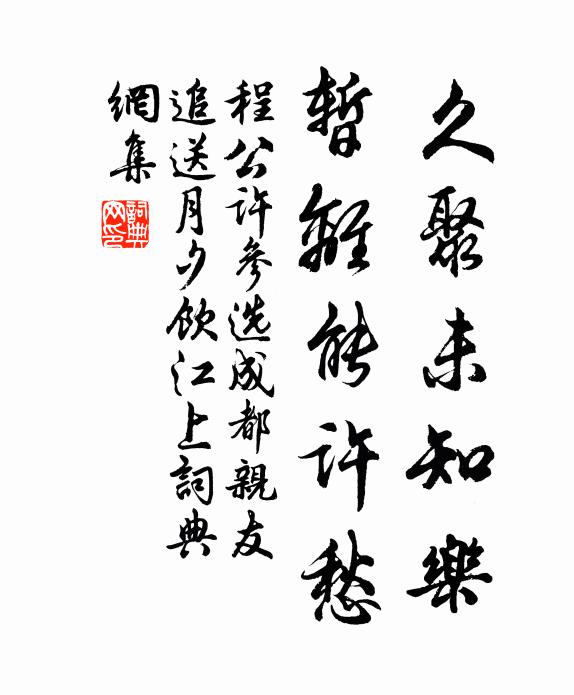 久聚未知樂
暫離能許愁
程公许參选成都親友
追送月夕飲江上詞典
網集
詞典
网印